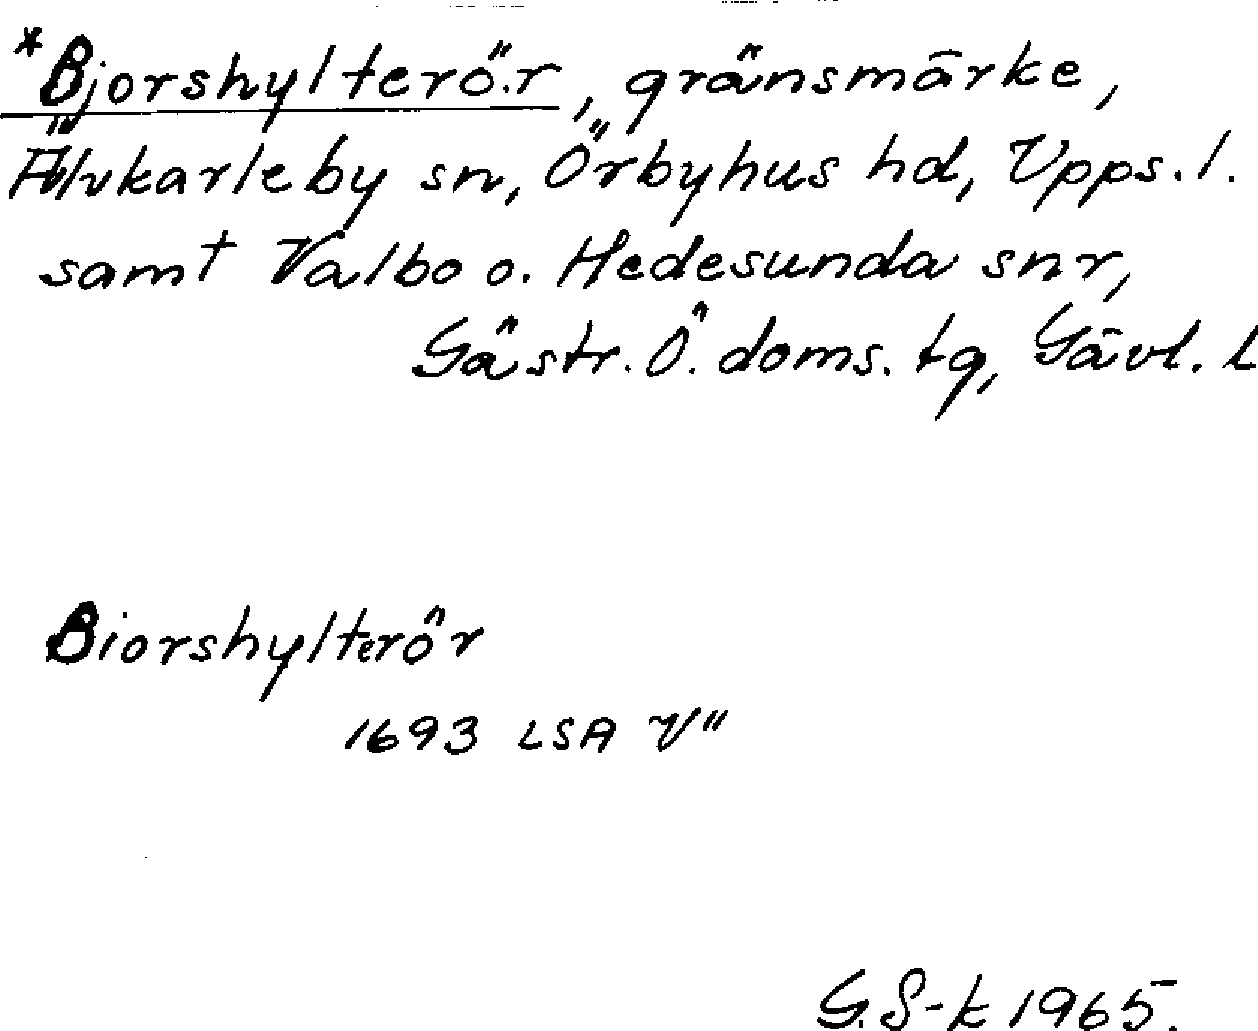 *Bjorshylterö.r, gränsmärke,
Älvkarleby sn, Örbyhus hd, Upps. l.
samt Valbo o. Hedesunda snr,
Gästr. Ö. doms. tg, Gävl. l
Biorshylterör
1693 LSA V"
G. S-k 1965.